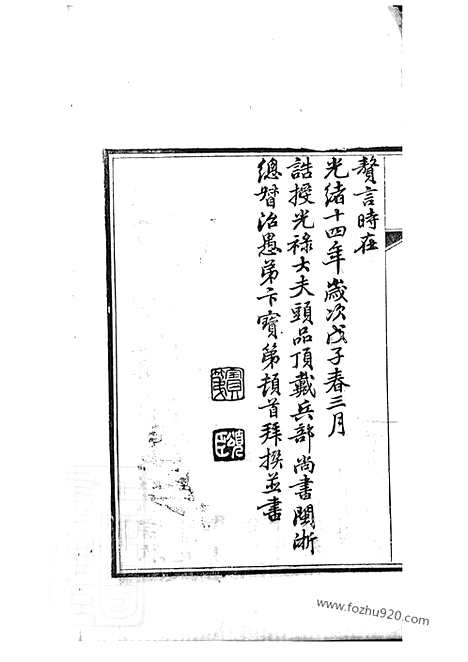 贅言時在
光緒十四年歲次戊子春三月
誥授光祿大夫頭品頂戴兵部尚書閩浙
總督治愚弟卞寶第頓首拜撰並書
寶第
www.fozhu920.com